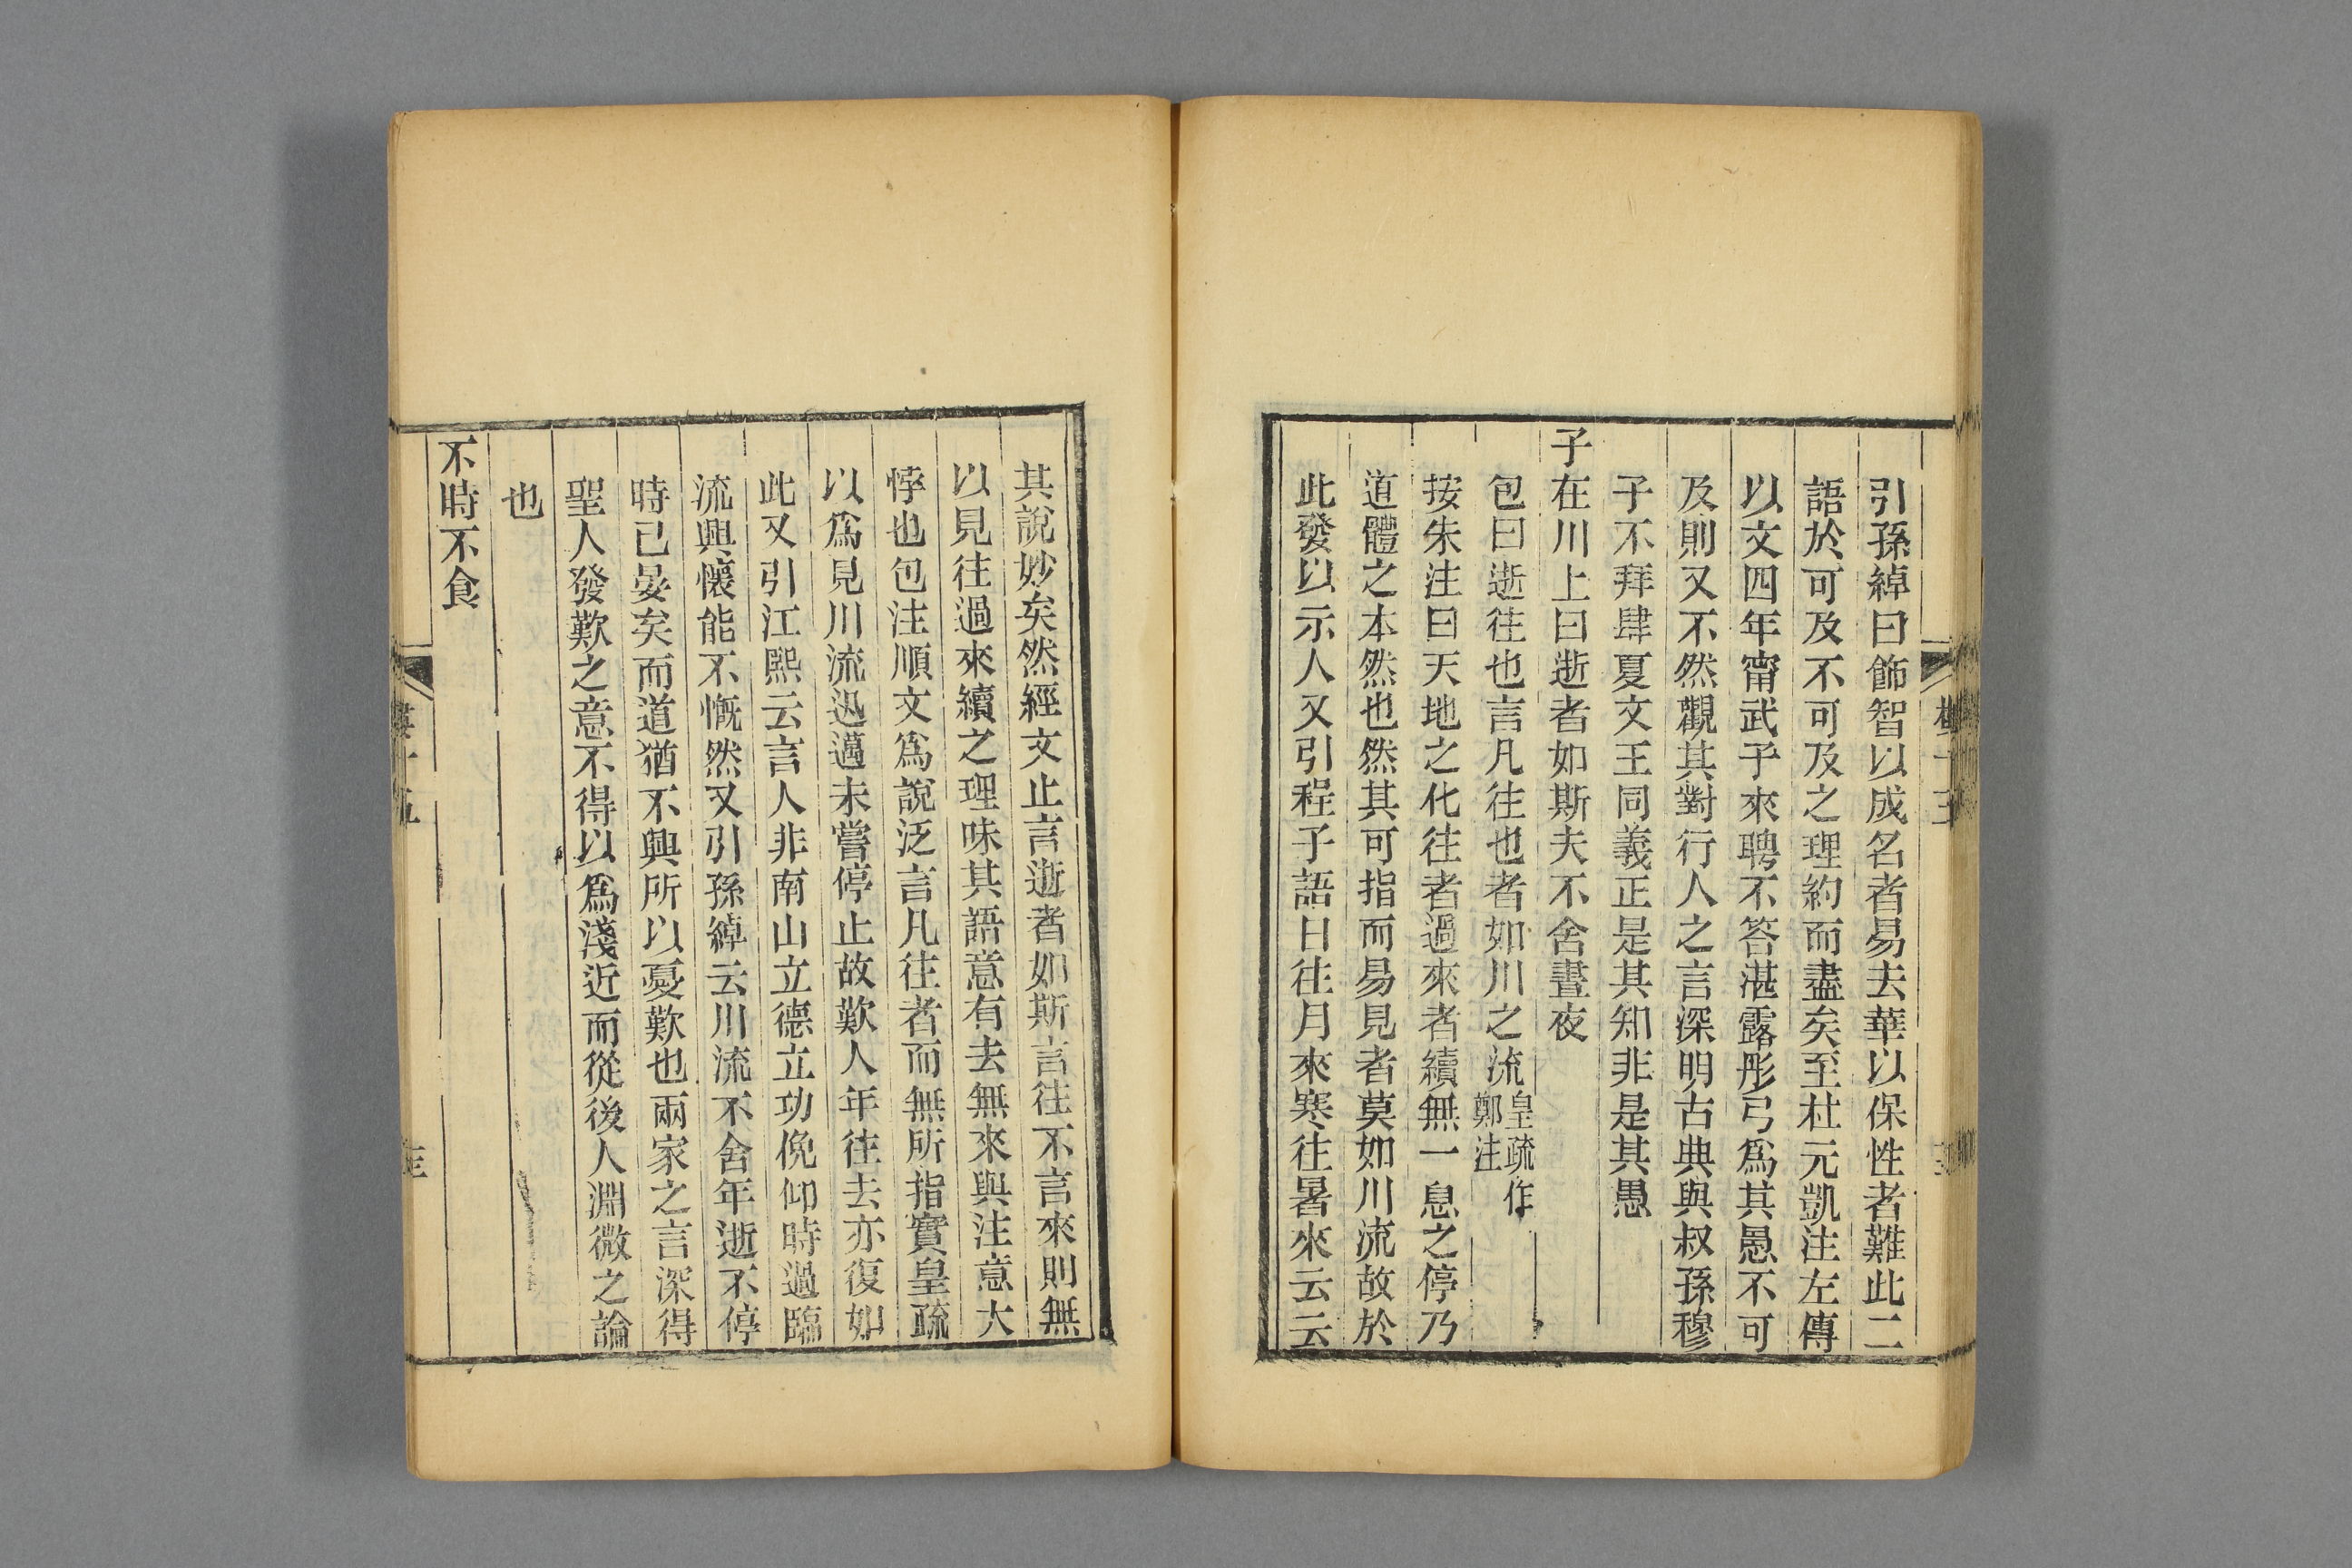 引孫綽曰飾智以成名者易去華以保性者難此二
語於可及不可及之理約而盡矣至杜元凱注左傳
以文四年甯武子來聘不答湛露彤弓爲其愚不可
及則又不然觀其對行人之言深明古典與叔孫穆
子不拜肆夏文王同義正是其知非是其愚
子在川上曰逝者如斯夫不舍晝夜
包曰逝往也言凡往也者如川之流皇疏作鄭注
按朱注曰天地之化往者過來者續無一息之停乃
道體之本然也然其可指而易見者莫如川流故於
此發以示人又引程子語日往月來寒往暑來云云
其說妙矣然經文止言逝者如斯言往不言來則無
以見往過來續之理味其語意有去無來與注意大
悖也包注順文爲說泛言凡往者而無所指實皇疏
以爲見川流迅邁未嘗停止故歎人年往去亦復如
此又引江熙云言人非南山立德立功俛仰時過臨
流興懷能不慨然又引孫綽云川流不舍年逝不停
時已晏矣而道猶不興所以憂歎也兩家之言深得
聖人發歎之意不得以爲淺近而從後人淵微之論
也
不時不食